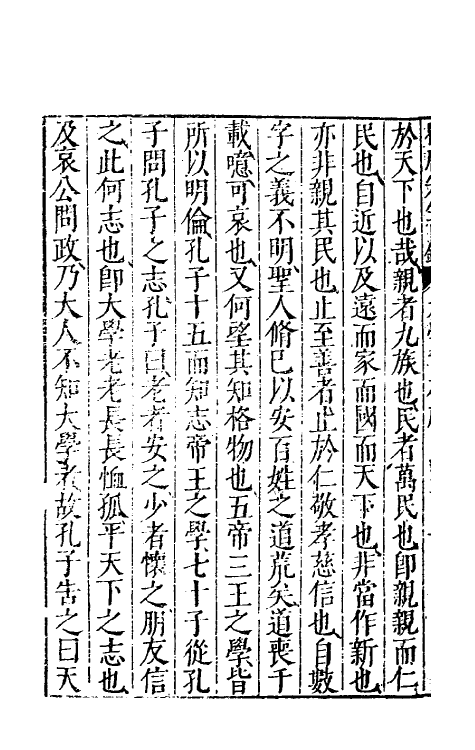 於天下也哉親者九族也民者萬民也卽親親而仁
民也自近以及遠而家而國而天下也非當作新也
亦非親其民也止至善者止於仁敬孝慈信也自數
字之義不明聖人脩己以安百姓之道荒矣道喪千
載噫可哀也又何望其知格物也五帝三王之學皆
所以明倫孔子十五而知志帝王之學七十子從孔
子問孔子之志孔子曰老者安之少者懷之朋友信
之此何志也卽大學老老長長恤孤平天下之志也
及哀公問政乃大人不知大學者故孔子告之曰天